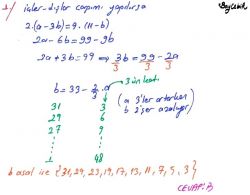 1/ içler-dışlar çarpımı yapılırsa
2.(a-3b)=9.(11-b)
2a-6b=99-9b
2a+3b=99 ⇒ 3b/3 = 99/3 - 2a/3
b=33-2/3.a
3'ün katı
31 3
29 6
27 9
(a 3'er artarken
b 2'şer azalıyor)
1 48
b asal ise {31,29,23,19,17,13,11,7,5,3}
CEVAP: